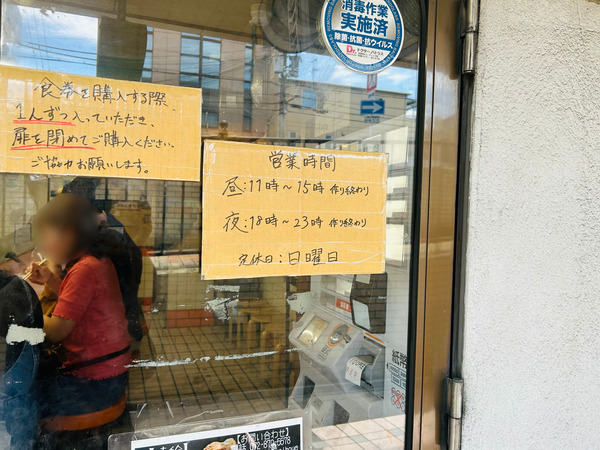 消毒作業
実施済
除菌・抗菌・抗ウイルス
食券を購入する際、
1人ずつ入っていただき、
扉を閉めてご購入ください。
ご協力お願いします。
営業時間
昼:11時〜15時 作り終わり
夜:18時〜23時 作り終わり
定休日:日曜日
紙幣
【お問い合わせ】